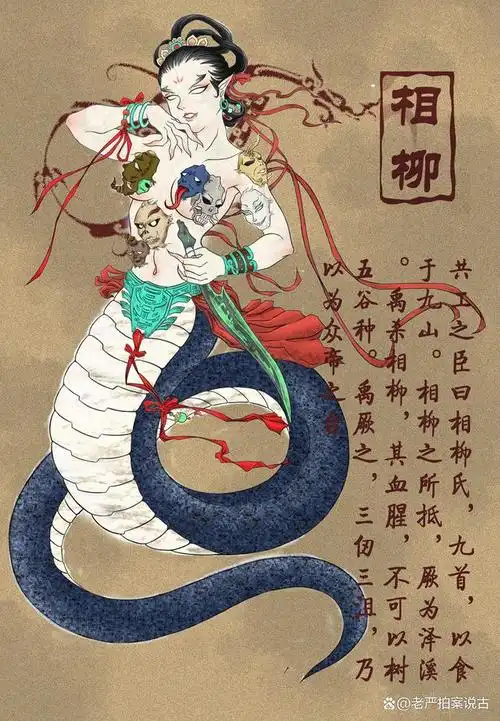 相柳
共工之臣曰相柳氏，九首，以食
于九山。相柳之所抵，厥为泽溪
。禹杀相柳，其血腥，不可以树
五谷种。禹厥之，三仞三沮，乃
以为众帝之台
@老严拍案说古